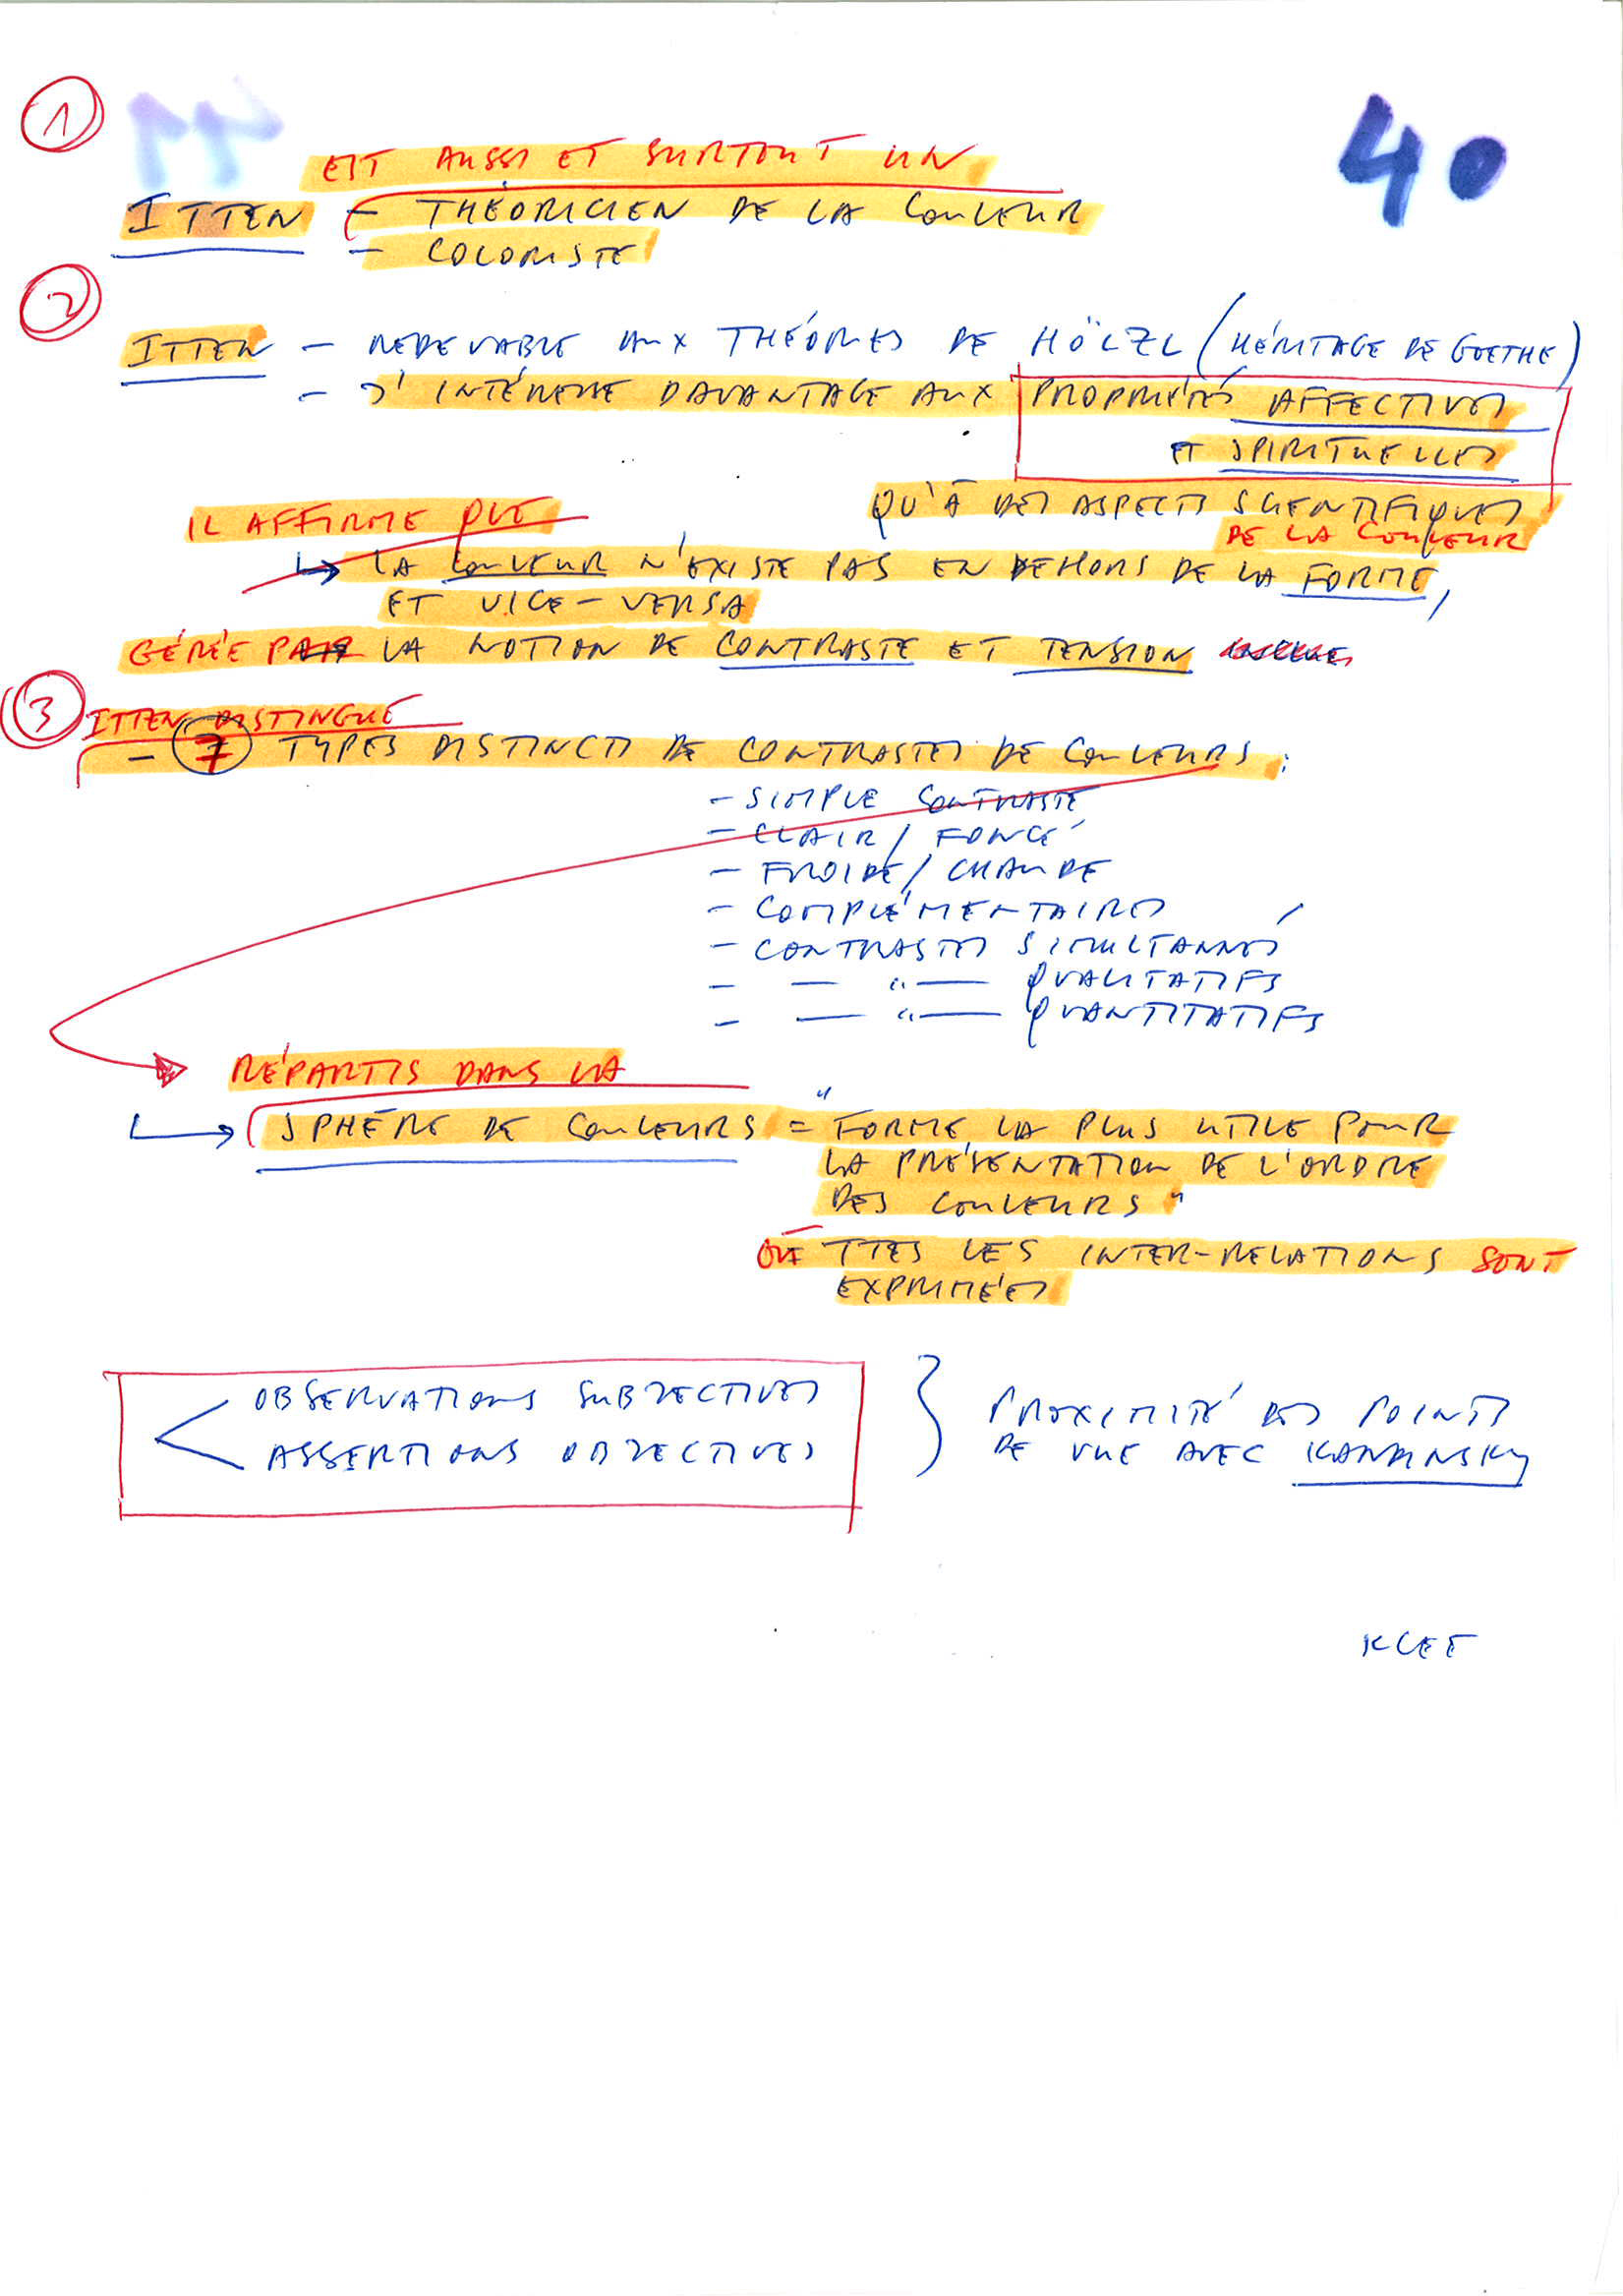 1
40
EST AUSSI ET SURTOUT UN
ITTEN – THÉORICIEN DE LA COULEUR
– COLORISTE
2
ITTEN – REDEVABLE AUX THÉORIES DE HÖLZL (HÉRITAGE DE GOETHE)
– S'INTÉRESSE DAVANTAGE AUX PROPRIÉTÉS AFFECTIVES
ET SPIRITUELLES
QU'À DES ASPECTS SCIENTIFIQUES
IL AFFIRME QUE
DE LA COULEUR
↳ LA COULEUR N'EXISTE PAS EN DEHORS DE LA FORME,
ET VICE-VERSA
GÉRÉE PAR LA NOTION DE CONTRASTE ET TENSION
3 ITTEN DISTINGUE
– 7 TYPES DISTINCTS DE CONTRASTES DE COULEURS :
– SIMPLE CONTRASTE
– CLAIR / FONCÉ
– FROIDE / CHAUDE
– COMPLÉMENTAIRES
– CONTRASTES SIMULTANNÉS
– — " — QUALITATIFS
– — " — QUANTITATIFS
RÉPARTIS DANS LA
↳ SPHÈRE DE COULEURS = "FORME LA PLUS UTILE POUR
LA PRÉSENTATION DE L'ORDRE
DES COULEURS"
OÙ TTES LES INTER-RELATIONS SONT
EXPRIMÉES
< OBSERVATIONS SUBJECTIVES
ASSERTIONS OBJECTIVES
} PROXIMITÉ DES POINTS
DE VUE AVEC KANDINSKY
KLEE